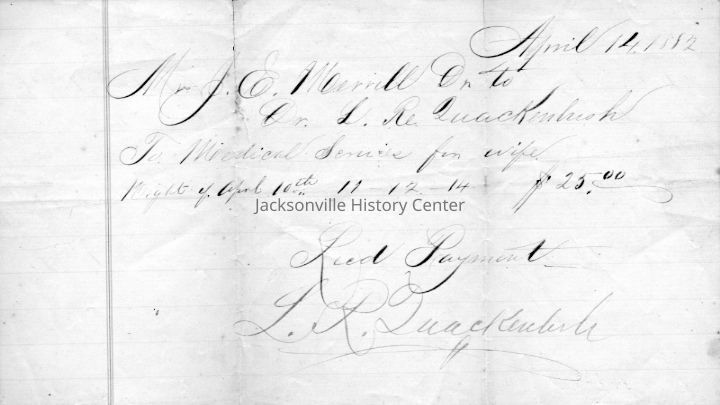 April 14, 1882
Mr J. E. Merrill Dr to
Dr. L. Re. Quackenbush
To Medical Services for wife
Night of April 10th 11 - 12 - 14 $25.00
Jacksonville History Center
Recd Payment
L. R. Quackenbush